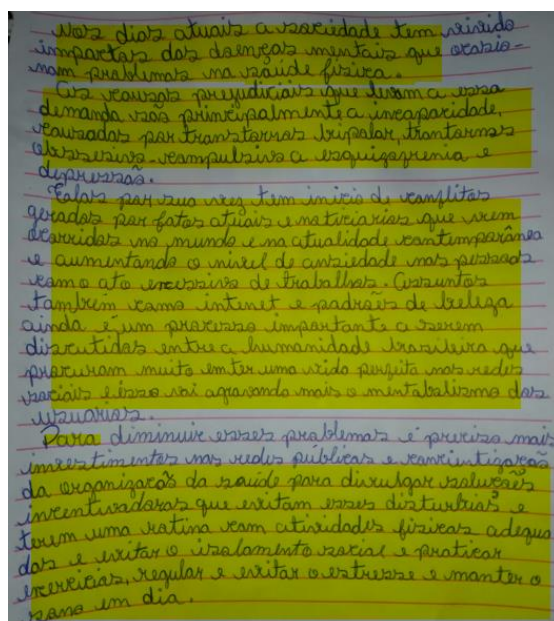 Nos dias atuais a sociedade tem vivido
impactos das doenças mentais que ocasio-
nam problemas na saúde física.
As causas prejudiciais que levam a essa
demanda são principalmente a incapacidade,
causadas por transtornos bipolar, trantornos
obssesivo-compulsivo a esquizofrenia e
depressão.
por sua vez tem inicio de conflitos
gerados por fatos atuais e noticiarios que vem
ocorridos no mundo e na atualidade contemporânea
e aumentando o nível de ansiedade nas pessoas
como ato excessivo de trabalhos. Assuntos
também como intenet e padrões de beleza
ainda é um processo importante a serem
discutidos entre a humanidade brasileira que
procuram muito em ter uma vida perfeita nas redes
sociais e isso vai agravando mais o mentabalismo dos
usuarios.
Para diminuir esses problemas é preciso mais
investimentos nas redes públicas e
da saúde para divulgar soluções
incentivadoras que evitam esses disturbios e
terem uma rotina com atividades físicas adequa
das e evitar o isolamento social e praticar
exercicios, regular e evitar o estresse e manter o
sono em dia.